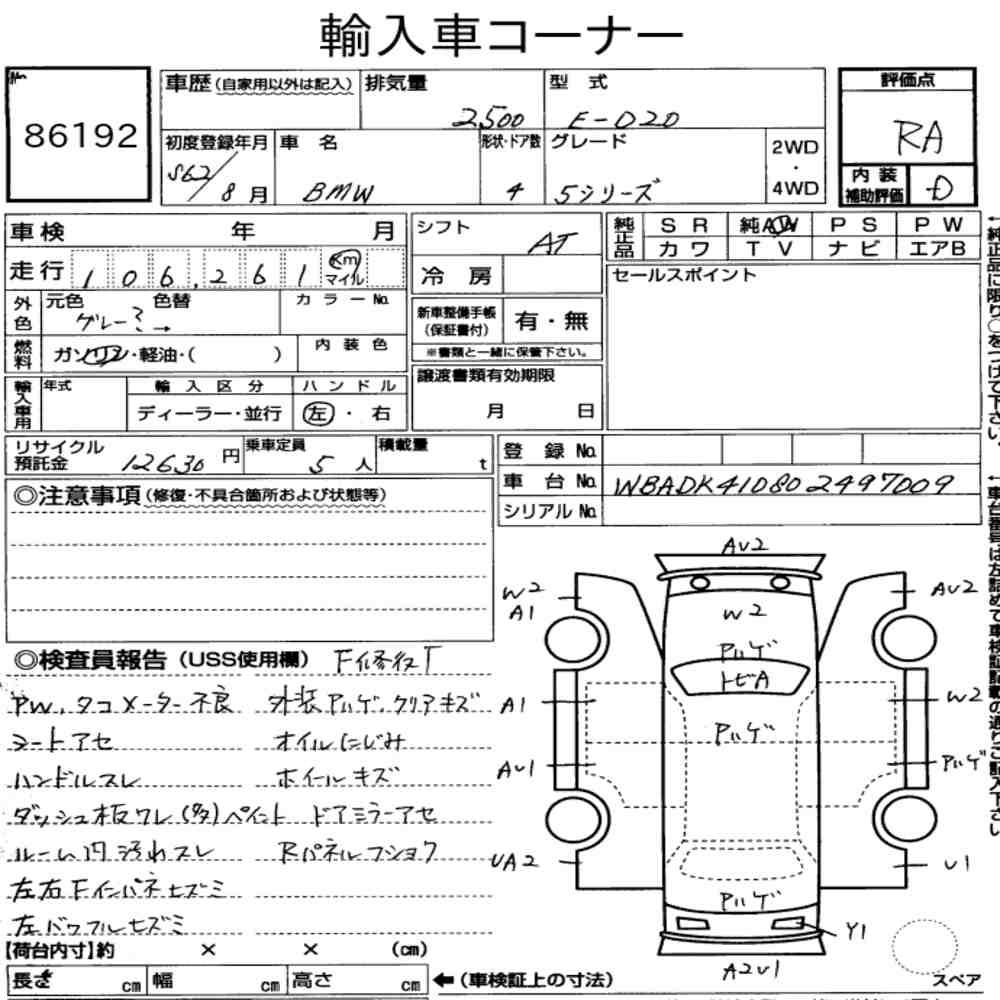 輸入車コーナー
No.
86192
車歴(自家用以外は記入)
排気量
2500
型 式
E-D20
評価点
RA
初度登録年月
S62/8月
車 名
BMW
形状・ドア数
4
グレード
5シリーズ
2WD
・
4WD
内装補助評価
D
車検 年 月
走行 106,261 Km マイル
シフト
AT
純正品
SR 純AW PS PW
カワ TV ナビ エアB
冷 房
セールスポイント
外色
元色 色替
グレーミ→
カラーNo.
新車整備手帳(保証書付)
有・無
※書類と一緒に保管下さい。
燃料
ガソリン・軽油・( )
内装色
譲渡書類有効期限
月 日
輸入車用
年式
輸入区分
ディーラー・並行
ハンドル
左・右
リサイクル預託金
12630円
乗車定員
5人
積載量
t
登録No.
車台No.
WBADK410802497009
シリアルNo.
◎注意事項(修復・不具合箇所および状態等)
←純正品に限り○をつけて下さい。
←車台番号は左詰めで車検証記載の通りご記入下さい
◎検査員報告(USS使用欄) F修復T
PW、タコメーター不良 外装アルゲ、クリアキズ
シートアセ オイルにじみ
ハンドルスレ ホイールキズ
ダッシュ板ワレ(多)ペイント ドアミラーアセ
ルーム内汚れスレ Rパネルフショク
左右Fインパネヒズミ
左バッフルヒズミ
AU2
W2
A1
W2
AU2
アルゲ
トビA
A1
W2
アルゲ
AU1
アルゲ
UA2
U1
アルゲ
Y1
A2U1
スペア
【荷台内寸】約 × × (cm)
長さ cm 幅 cm 高さ cm
←(車検証上の寸法)